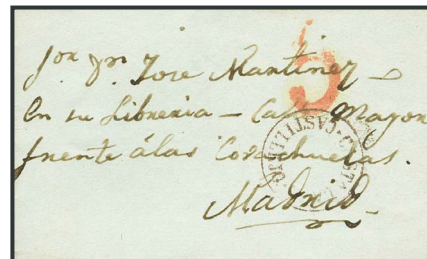 Sor Dn Jose Martinez
En su Libreria - Calle Mayor
frente á las Covachuelas.
Madrid
5
CASTILLA